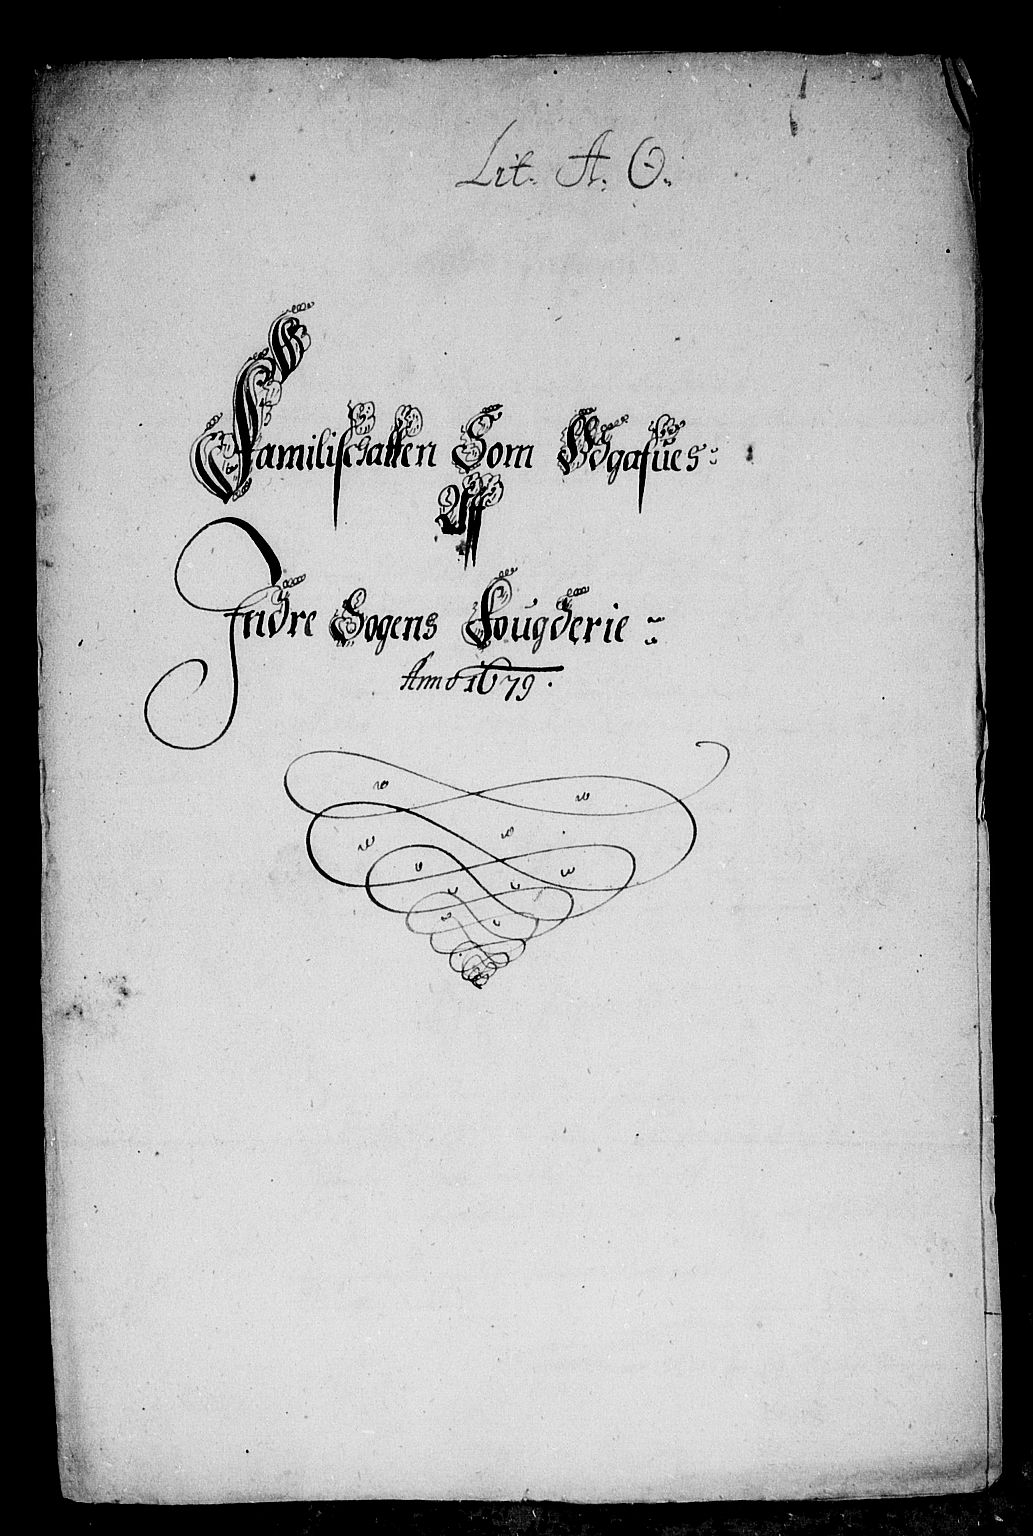 Lit. A. O.
Familischatten Som Udgafues:
Aff
Indre Sogens Fougderie :
Anno 1679.